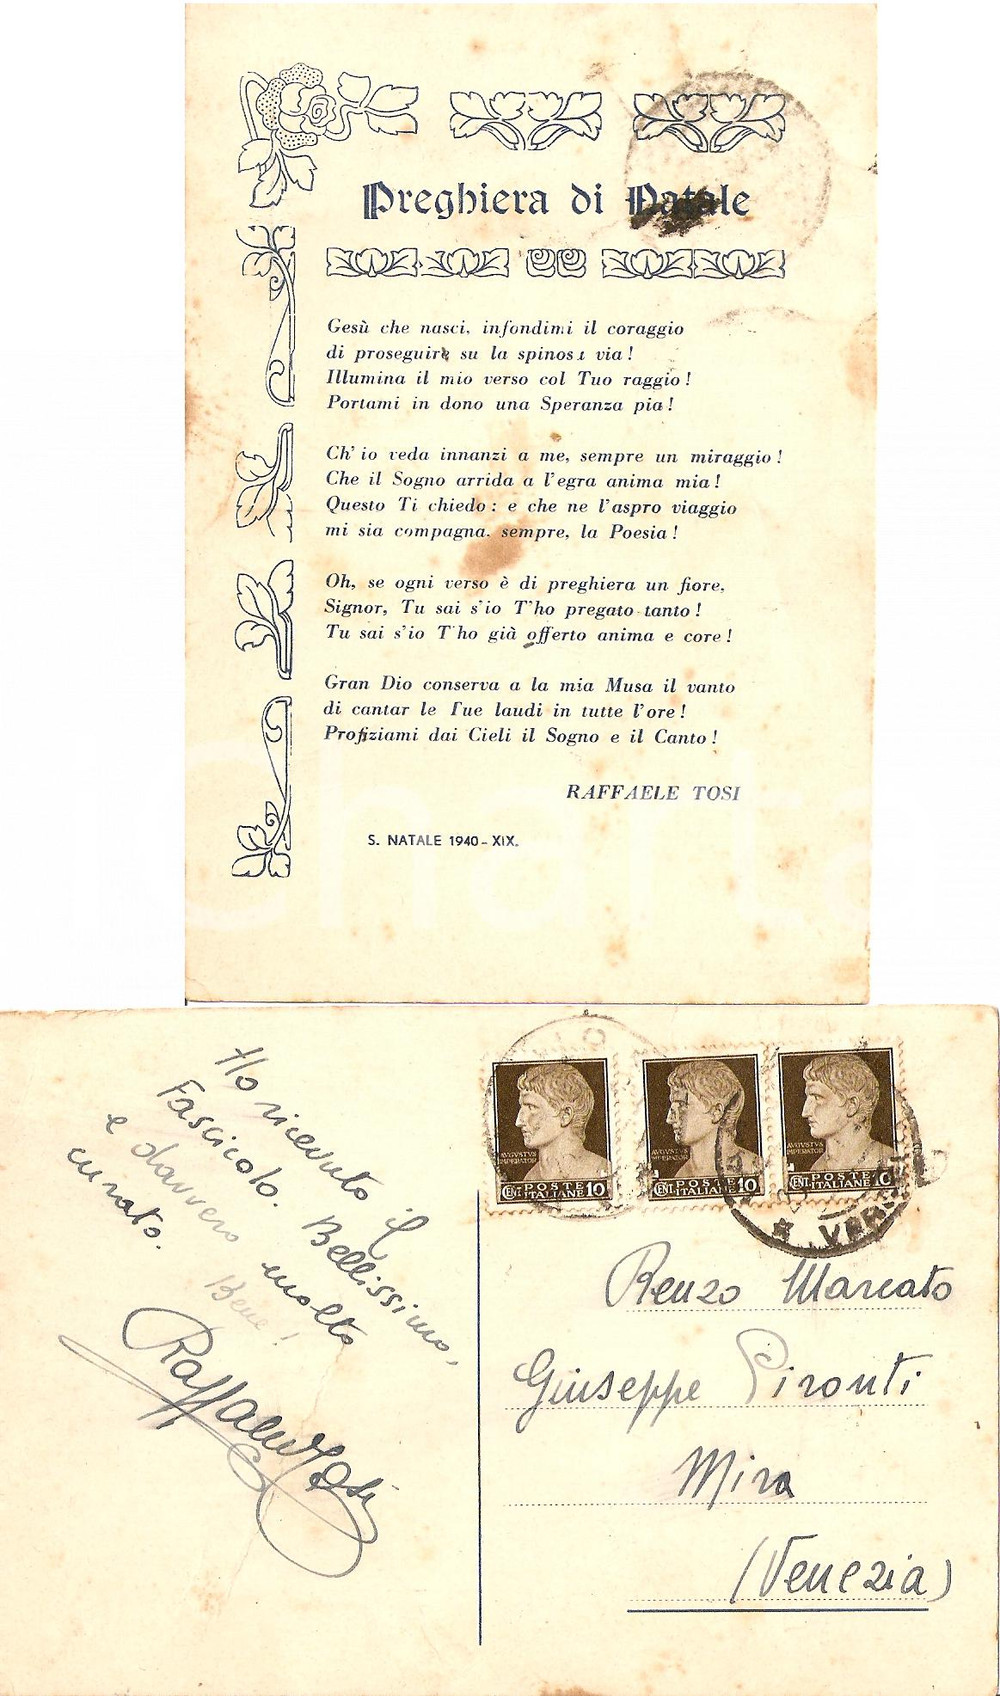 Preghiera di Natale
Gesù che nasci, infondimi il coraggio
di proseguire su la spinosa via !
Illumina il mio verso col Tuo raggio !
Portami in dono una Speranza pia !
Ch' io veda innanzi a me, sempre un miraggio !
Che il Sogno arrida a l'egra anima mia !
Questo Ti chiedo : e che ne l'aspro viaggio
mi sia compagna, sempre, la Poesia !
Oh, se ogni verso è di preghiera un fiore,
Signor, Tu sai s'io T'ho pregato tanto !
Tu sai s'io T'ho già offerto anima e core !
Gran Dio conserva a la mia Musa il vanto
di cantar le Tue laudi in tutte l'ore !
Profiziami dai Cieli il Sogno e il Canto !
RAFFAELE TOSI
S. NATALE 1940 - XIX.
Ho ricevuto il
Fascicolo. Bellissimo,
e davvero molto
curato. Bene !
Raffaele Tosi
AVGVSTVS
IMPERATOR
CENT. POSTE ITALIANE 10
AVGVSTVS
IMPERATOR
CENT. POSTE ITALIANE 10
AVGVSTVS
IMPERATOR
CENT. POSTE ITALIANE 10
Renzo Marcato
Giuseppe Pironti
Mira
(Venezia)